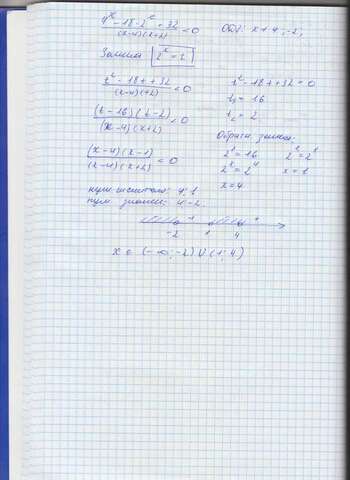 4^x - 18·2^x + 32 / (x-4)(x+2) < 0   ОДЗ: x ≠ 4; -2;
Замена 2^x = t
t² - 18t + 32 / (x-4)(x+2) < 0   t² - 18t + 32 = 0
t₁ = 16
(t-16)(t-2) / (x-4)(x+2) < 0   t₂ = 2
Обратн. замена:
(x-4)(x-1) / (x-4)(x+2) < 0   2^x = 16   2^x = 2^1
2^x = 2^4   x = 1
нули числителя: 4; 1   x = 4
нули знамен: 4; -2
-2   1   4
x ∈ (-∞; -2) U (1; 4)